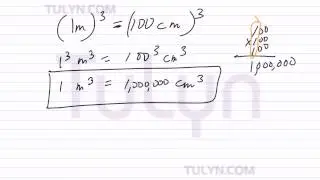 TULYN.COM
(1m)³ = (100cm)³
1³ m³ = 100³ cm³
1 m³ = 1,000,000 cm³
100
x100
100
1,000,000
TULYN
TULYN.COM